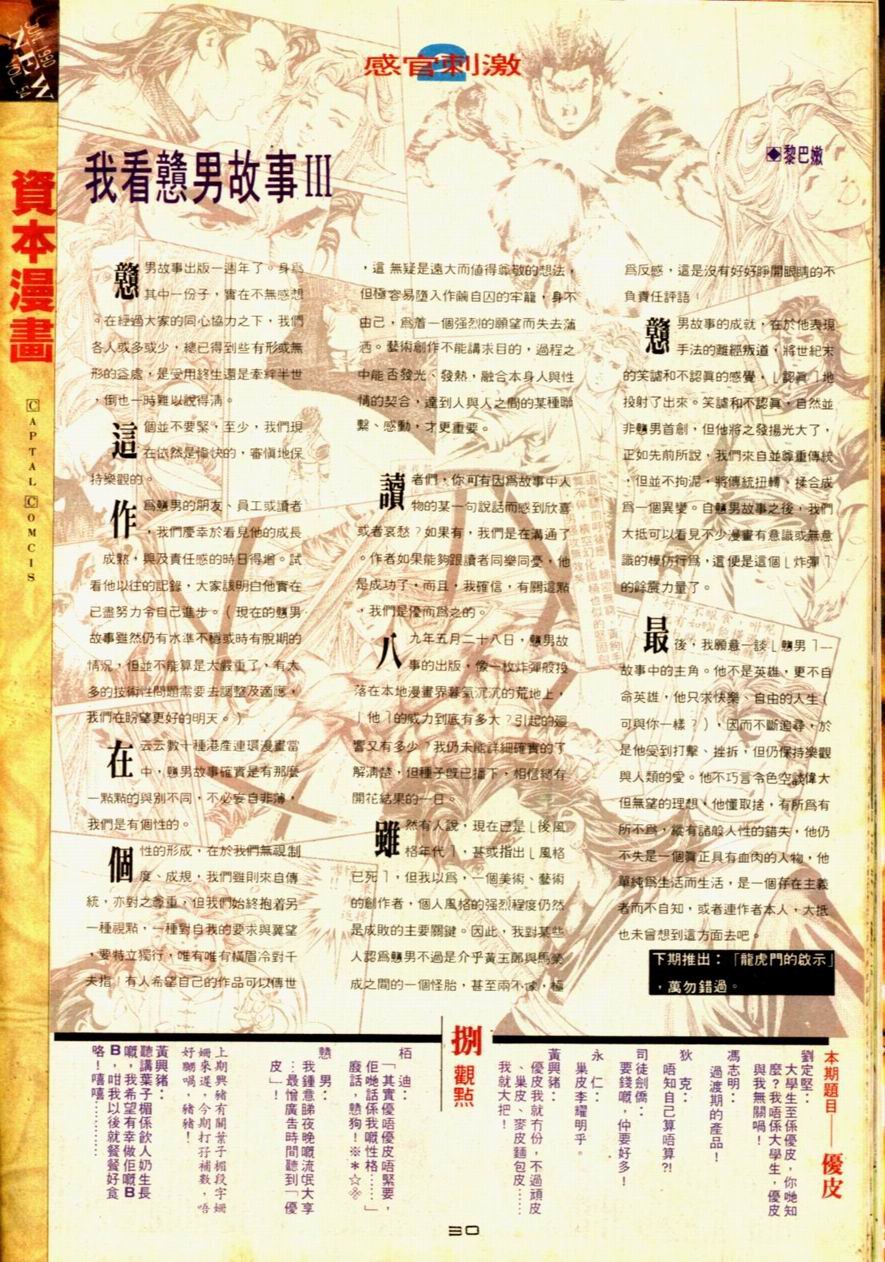 JUN 1990
NEW
VOL. 54
資本漫畫
CAPTAL COMCIS
感官刺激
我看戇男故事III
黎巴嫩
戇男故事出版一週年了。身爲
其中一份子，實在不無感想
。在經過大家的同心協力之下，我們
各人或多或少，總已得到些有形或無
形的益處，是受用終生還是牽絆半世
，倒也一時難以說得清。
這個並不要緊，至少，我們現
在依然是愉快的，審慎地保
持樂觀的。
作爲戇男的朋友、員工或讀者
，我們慶幸於看見他的成長
、成熟，與及責任感的時日得增。試
看他以往的記錄，大家該明白他實在
已盡努力令自己進步。（現在的戇男
故事雖然仍有水準不穩或時有脫期的
情況，但並不能算是太嚴重了，有太
多的技術性問題需要去調整及適應，
我們在盼望更好的明天。）
在云云數十種港產連環漫畫當
中，戇男故事確實是有那麼
一點點的與別不同，不必妄自菲薄，
我們是有個性的。
個性的形成，在於我們無視制
度、成規，我們雖則來自傳
統，亦對之尊重，但我們始終抱着另
一種視點，一種對自我的要求與冀望
，要特立獨行，唯有唯有橫眉冷對千
夫指！有人希望自己的作品可以傳世
，這無疑是遠大而值得尊敬的想法，
但極容易墮入作繭自囚的牢籠，身不
由己，爲着一個强烈的願望而失去瀟
洒。藝術創作不能講求目的，過程之
中能否發光、發熱，融合本身人與性
情的契合，達到人與人之間的某種聯
繫、感動，才更重要。
讀者們，你可有因爲故事中人
物的某一句說話而感到欣喜
或者哀愁？如果有，我們是在溝通了
。作者如果能夠跟讀者同樂同憂，他
是成功了，而且，我確信，有關這點
，我們是優而爲之的。
八九年五月二十八日，戇男故
事的出版，像一枚炸彈般投
落在本地漫畫界暮氣沉沉的荒地上，
「他」的威力到底有多大？引起的迴
響又有多少？我仍未能詳細確實的了
解清楚，但種子旣已播下，相信總有
開花結果的一日。
雖然有人說，現在已是「後風
格年代」，甚或指出「風格
已死」，但我以爲，一個美術、藝術
的創作者，個人風格的强烈程度仍然
是成敗的主要關鍵。因此，我對某些
人認爲戇男不過是介乎黃玉郎與馬榮
成之間的一個怪胎，甚至兩不像，極
爲反感，這是沒有好好睜開眼睛的不
負責任評語。
戇男故事的成就，在於他表現
手法的離經叛道，將世紀末
的笑謔和不認眞的感覺，「認眞」地
投射了出來。笑謔和不認眞，自然並
非戇男首創，但他將之發揚光大了，
正如先前所說，我們來自並尊重傳統
，但並不拘泥，將傳統扭轉、揉合成
爲一個異變。自戇男故事之後，我們
大抵可以看見不少漫畫有意識或無意
識的模仿行爲，這便是這個「炸彈」
的餘震力量了。
最後，我願意一談「戇男」——
故事中的主角。他不是英雄，更不自
命英雄，他只求快樂、自由的人生（
可與你一樣？），因而不斷追尋，於
是他受到打擊、挫拆，但仍保持樂觀
與人類的愛。他不巧言令色空談偉大
但無望的理想，他懂取捨，有所爲有
所不爲，縱有諸般人性的錯失，他仍
不失是一個眞正具有血肉的人物，他
單純爲生活而生活，是一個存在主義
者而不自知，或者連作者本人，大抵
也未曾想到這方面去吧。
下期推出：「龍虎門的啟示」
，萬勿錯過。
本期題目——優皮
劉定堅：
大學生至係優皮，你哋知
麼？我唔係大學生，優皮
與我無關喎！
馮志明：
過渡期的產品！
狄　克：
唔知自己算唔算?!
司徒劍僑：
要錢嘅，仲要好多！
永　仁：
巢皮李耀明乎。
黃興豬：
優皮我就冇份，不過頑皮
、巢皮、麥皮麵包皮……
我就大把！
捌觀點
栢　迪：
「其實優唔優皮唔緊要，
佢哋話係我嘅性格……」
廢話，戇狗！※＊☆※
戇　男：
我鍾意睇夜晚嘅流氓大享
…最憎廣告時間聽到「優
皮」！
上期興豬有關葉子楣段字姍
姍來遲，今期打孖補數，唔
好嬲喎，豬豬！
黃興豬：
聽講葉子楣係飲人奶生長
嘅，我希望有幸做佢嘅B
B，咁我以後就餐餐好食
咯！嘻嘻…………
30